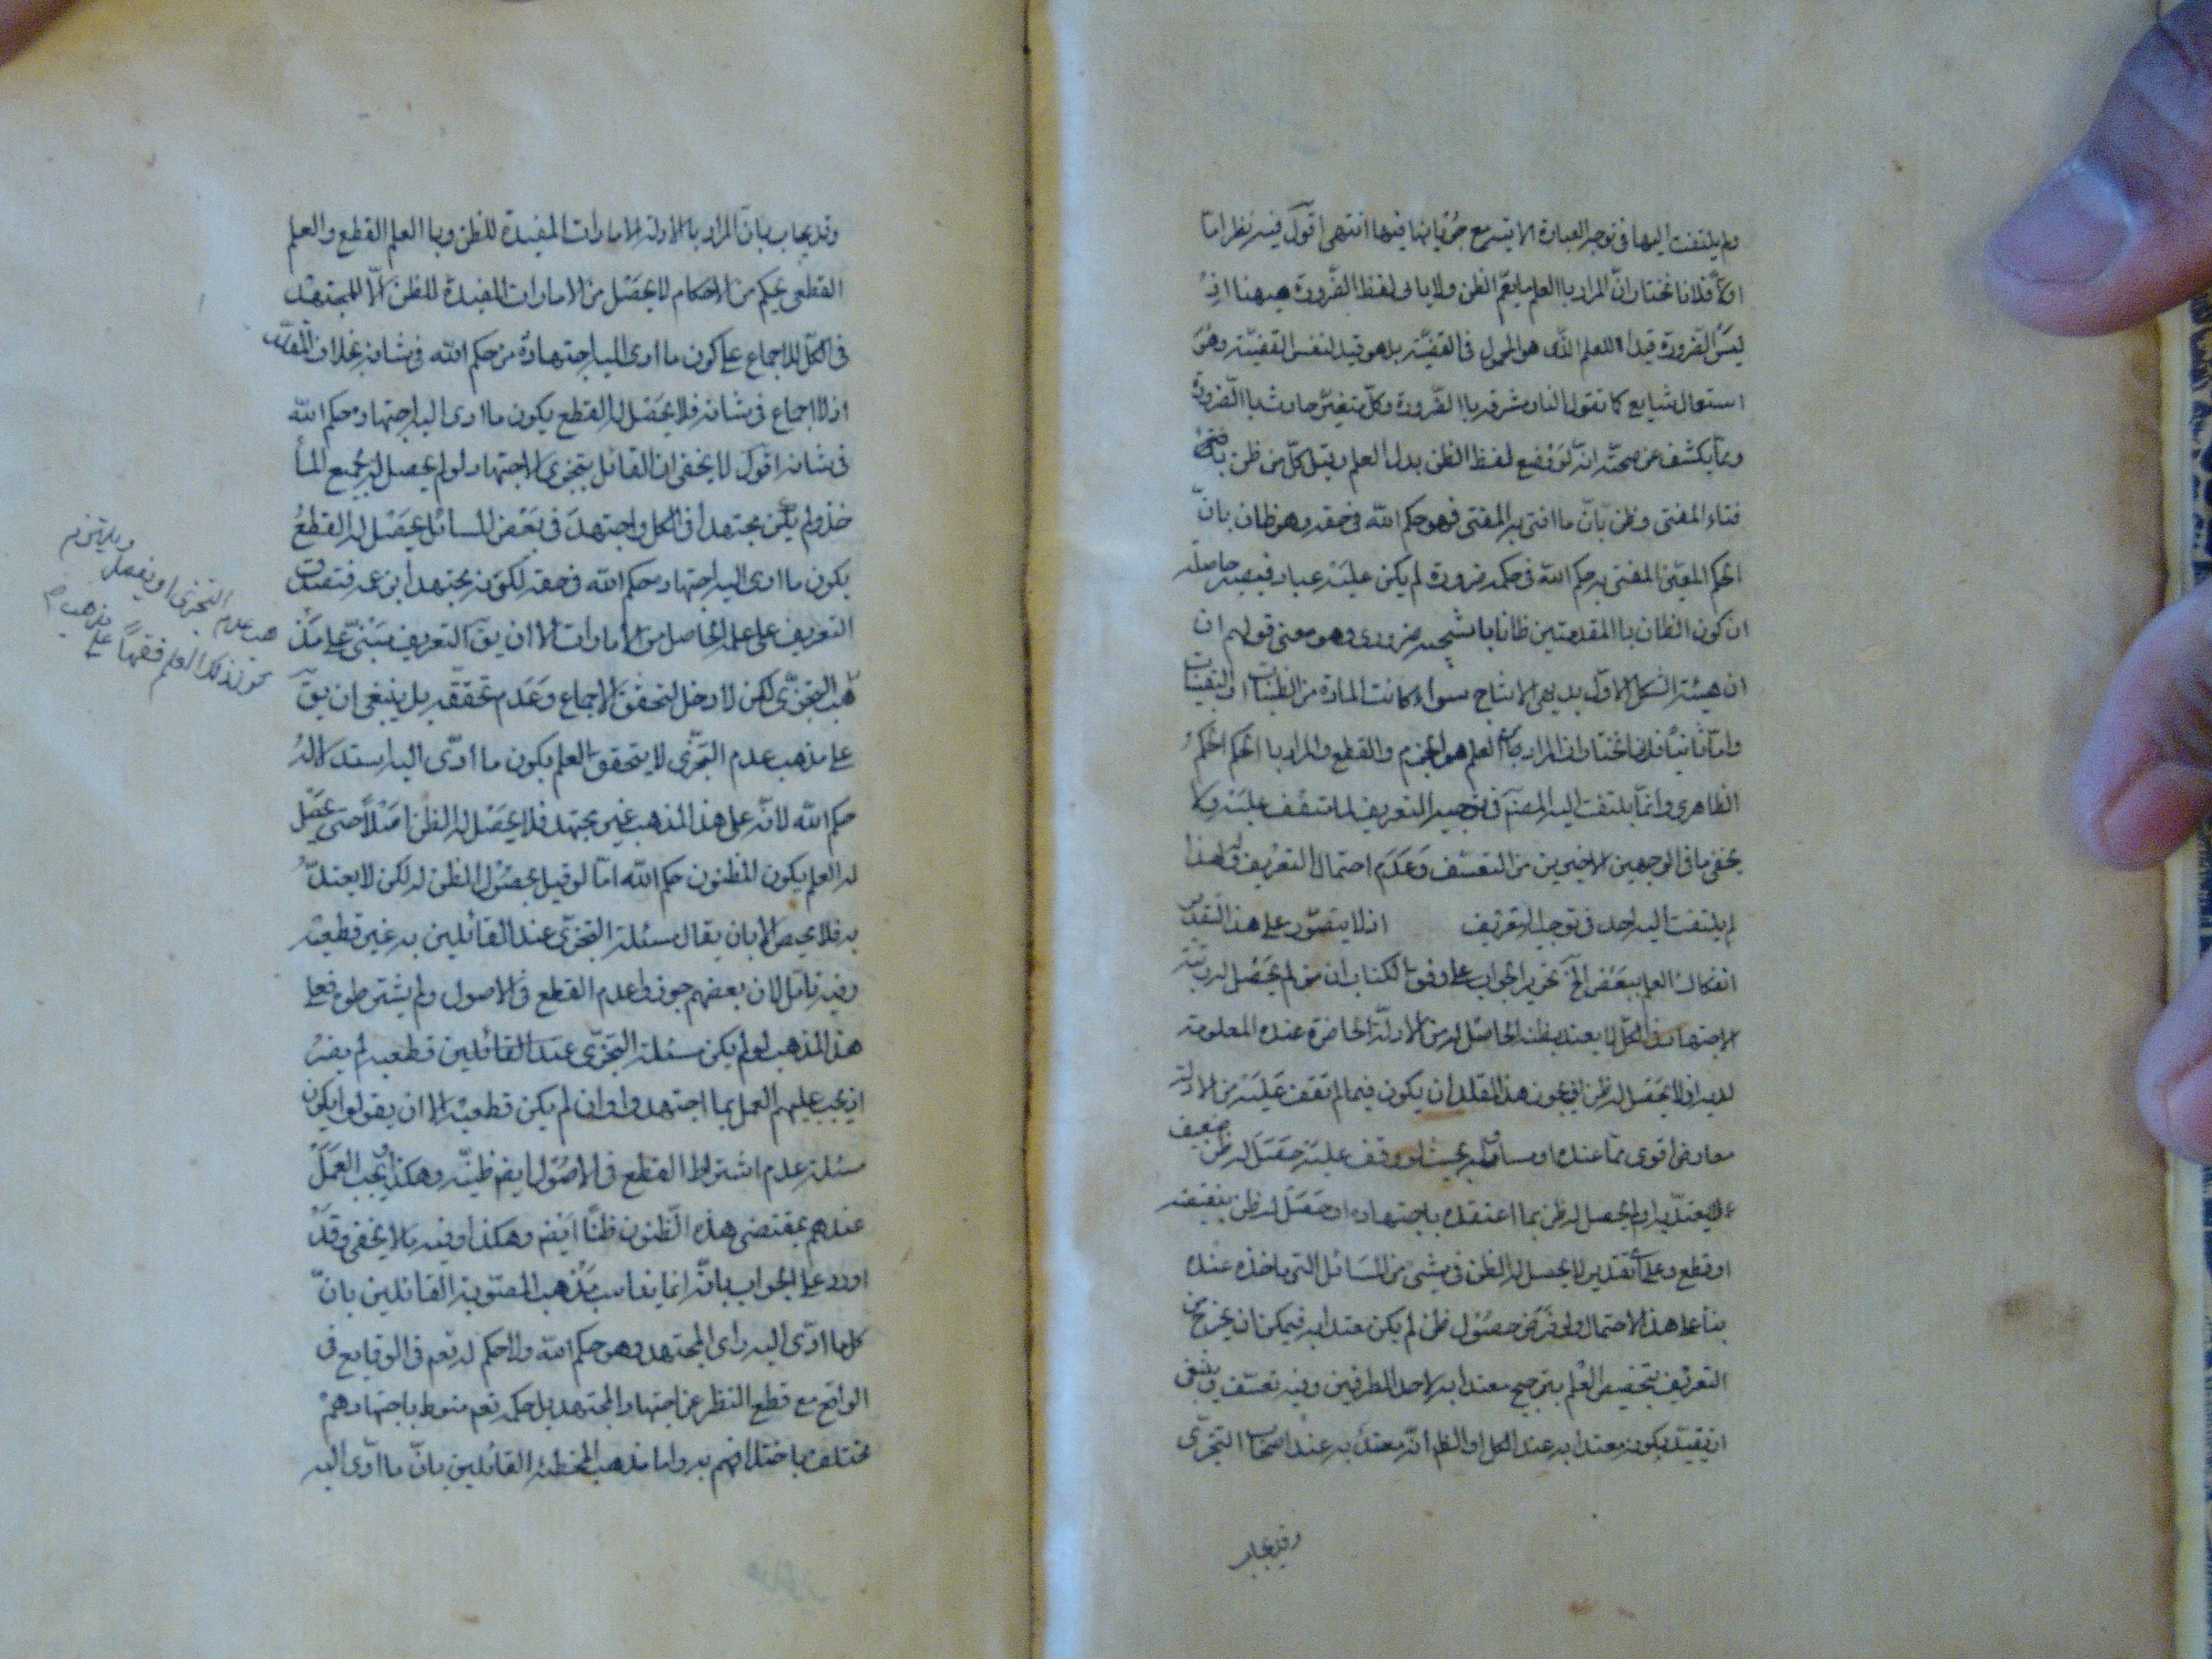 ولم يلتفت اليها فى توجيه العبارة الا يتسع جريانها فيها انتهى اقول فيه نظر اما
اولا فلانا نختار ان المراد با العلم ما يعم الظن ولا يابى لفظ الضرورة هيهنا اذ
ليس الضرورة قيدا للعلم الذى هو المحمول فى القضية بل هو قيد لنفس القضية وهو
استعمال شايع كما تقول النار مشرقة با الضرورة وكل متغير حادث با الضرورة
ومما يكشف عن صحته انه لو وضع لفظ الظن بدل العلم وقيل كل من ظن
فتاء المفتى وظن بان ما افتى به المفتى فهو حكم الله فى حقه وهو ظان بان
الحكم المعين المفتى به حكم الله فى حكمه ضرورة لم يكن عليه غبار فيصير حاصله
ان كون الظان با المقدمتين ظانا با لنتيجة ضرورى وهو معنى قولهم ان
ان هيئة الشكل الاول بديهى الانتاج سواء كانت المادة من الظنيات او اليقينيات
واما ثانيا فلانا نختار ان المراد با العلم هو الجزم والقطع والمراد با الحكم الحكم
الظاهرى وانما يلتفت اليه المصنف فى توجيه التعريف لما ستقف عليه ولا
يخفى ما فى الوجهين الاخيرين من التعسف وعدم احتمال التعريف ولهذا
لم يلتفت اليه احد فى توجيه التعريف اذ لا يتصور على هذا التقدير
انفكاك العلم ببعض الخ تحرير الجواب على وفق الكتاب ان من لم يحصل له رتبة
الاجتهاد فى الكل لا يعتد بظنه الحاصل له من الادلة الحاضرة عنده المعلومة
لديه اذ لا يحصل له ظن اذ يجوز هذا المقلد ان يكون فيما لم تقف عليه من الادلة
معارض اقوى مما عنده او مساو له بحيث لو وقف عليه حصل له ظن ضعيف
لا يعتد به او لم يحصل له ظن بما اعتقده باجتهاده او حصل له ظن بنقيضه
او قطع وعلى التقدير لا يحصل له الظن فى شئ من المسائل التى ماخذه عنده
بناء على هذا الاحتمال ولو فرض حصول ظن لم يكن معتدا به فيمكن ان يخرج عن
التعريف بتخصيص العلم بترجيح معتدا به لاحد الطرفين وفيه تعسف وينبغى
ان يقيد بكونه معتدا به عند الكل او الظاهر انه معتد به عند اصحاب التجزى
وقد يجاب
وقد يجاب بان المراد بالادلة الامارات المفيدة للظن وبا العلم القطع والعلم
القطعى بحكم من الاحكام لا يحصل من الامارات المفيدة للظن الا للمجتهد
فى الكل للاجماع على كون ما ادى اليه اجتهاده من حكم الله فى شانه بخلاف المقلد
اذ لا اجماع فى شانه فلا يحصل له القطع بكون ما ادى اليه اجتهاده حكم الله
فى شانه اقول لا يخفى ان القائل بتجزى الاجتهاد لو لم يحصل له جميع الما
خذ ولم يكن مجتهدا فى الكل واجتهد فى بعض المسائل يحصل له القطع
بكون ما ادى اليه اجتهاده حكم الله فى حقه لكونه مجتهدا بزعمه فتصدق
التعريف على علمه الحاصل من الامارات الا ان يق التعريف مبنى على مذ
هب التجزى لكن لا دخل لتحقق الاجماع وعدم تحققه بل ينبغى ان يق
على مذهب عدم التجزى لا يتحقق العلم بكون ما ادى اليه استدلاله
حكم الله لانه على هذا المذهب غير مجتهد فلا يحصل له الظن اصلا حتى يحصل
له العلم بكون المظنون حكم الله اما لو قيل بحصول الظن له لكن لا يعتد
به فلا محيص الا بان يقال مسئلة التجزى عند القائلين به غير قطعية
وفيه تامل لان بعضهم جوزوا عدم القطع فى الاصول ولم يشترطوه فعلى
هذا المذهب لو لم يكن مسئلة التجزى عند القائلين قطعية لم يضر
اذ يجب عليهم العمل بما اجتهدوا وان لم يكن قطعية الا ان يقولوا يكون
مسئلة عدم اشتراط القطع فى الاصول ايضم ظنية وهكذا ويجب العمل
عندهم بمقتضى هذه الظنون ظنا ايضم وهكذا وفيه ما لا يخفى وقد
اورد على الجواب بانه انما يناسب مذهب المصوبة القائلين بان
كل ما ادى اليه راى المجتهد وهو حكم الله ولا حكم له تعم فى الوقايع فى
الواقع مع قطع النظر عن اجتهاد المجتهد بل حكمه تعم منوط باجتهادهم
مختلف باختلافهم به واما مذهب المخطئة القائلين بان ما ادى اليه